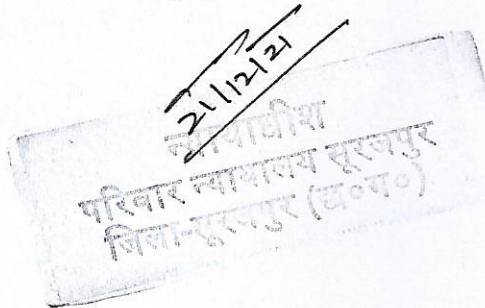 21/12/21
न्यायाधीश
परिवार न्यायालय सूरजपुर
जिला-सूरजपुर (छ०ग०)